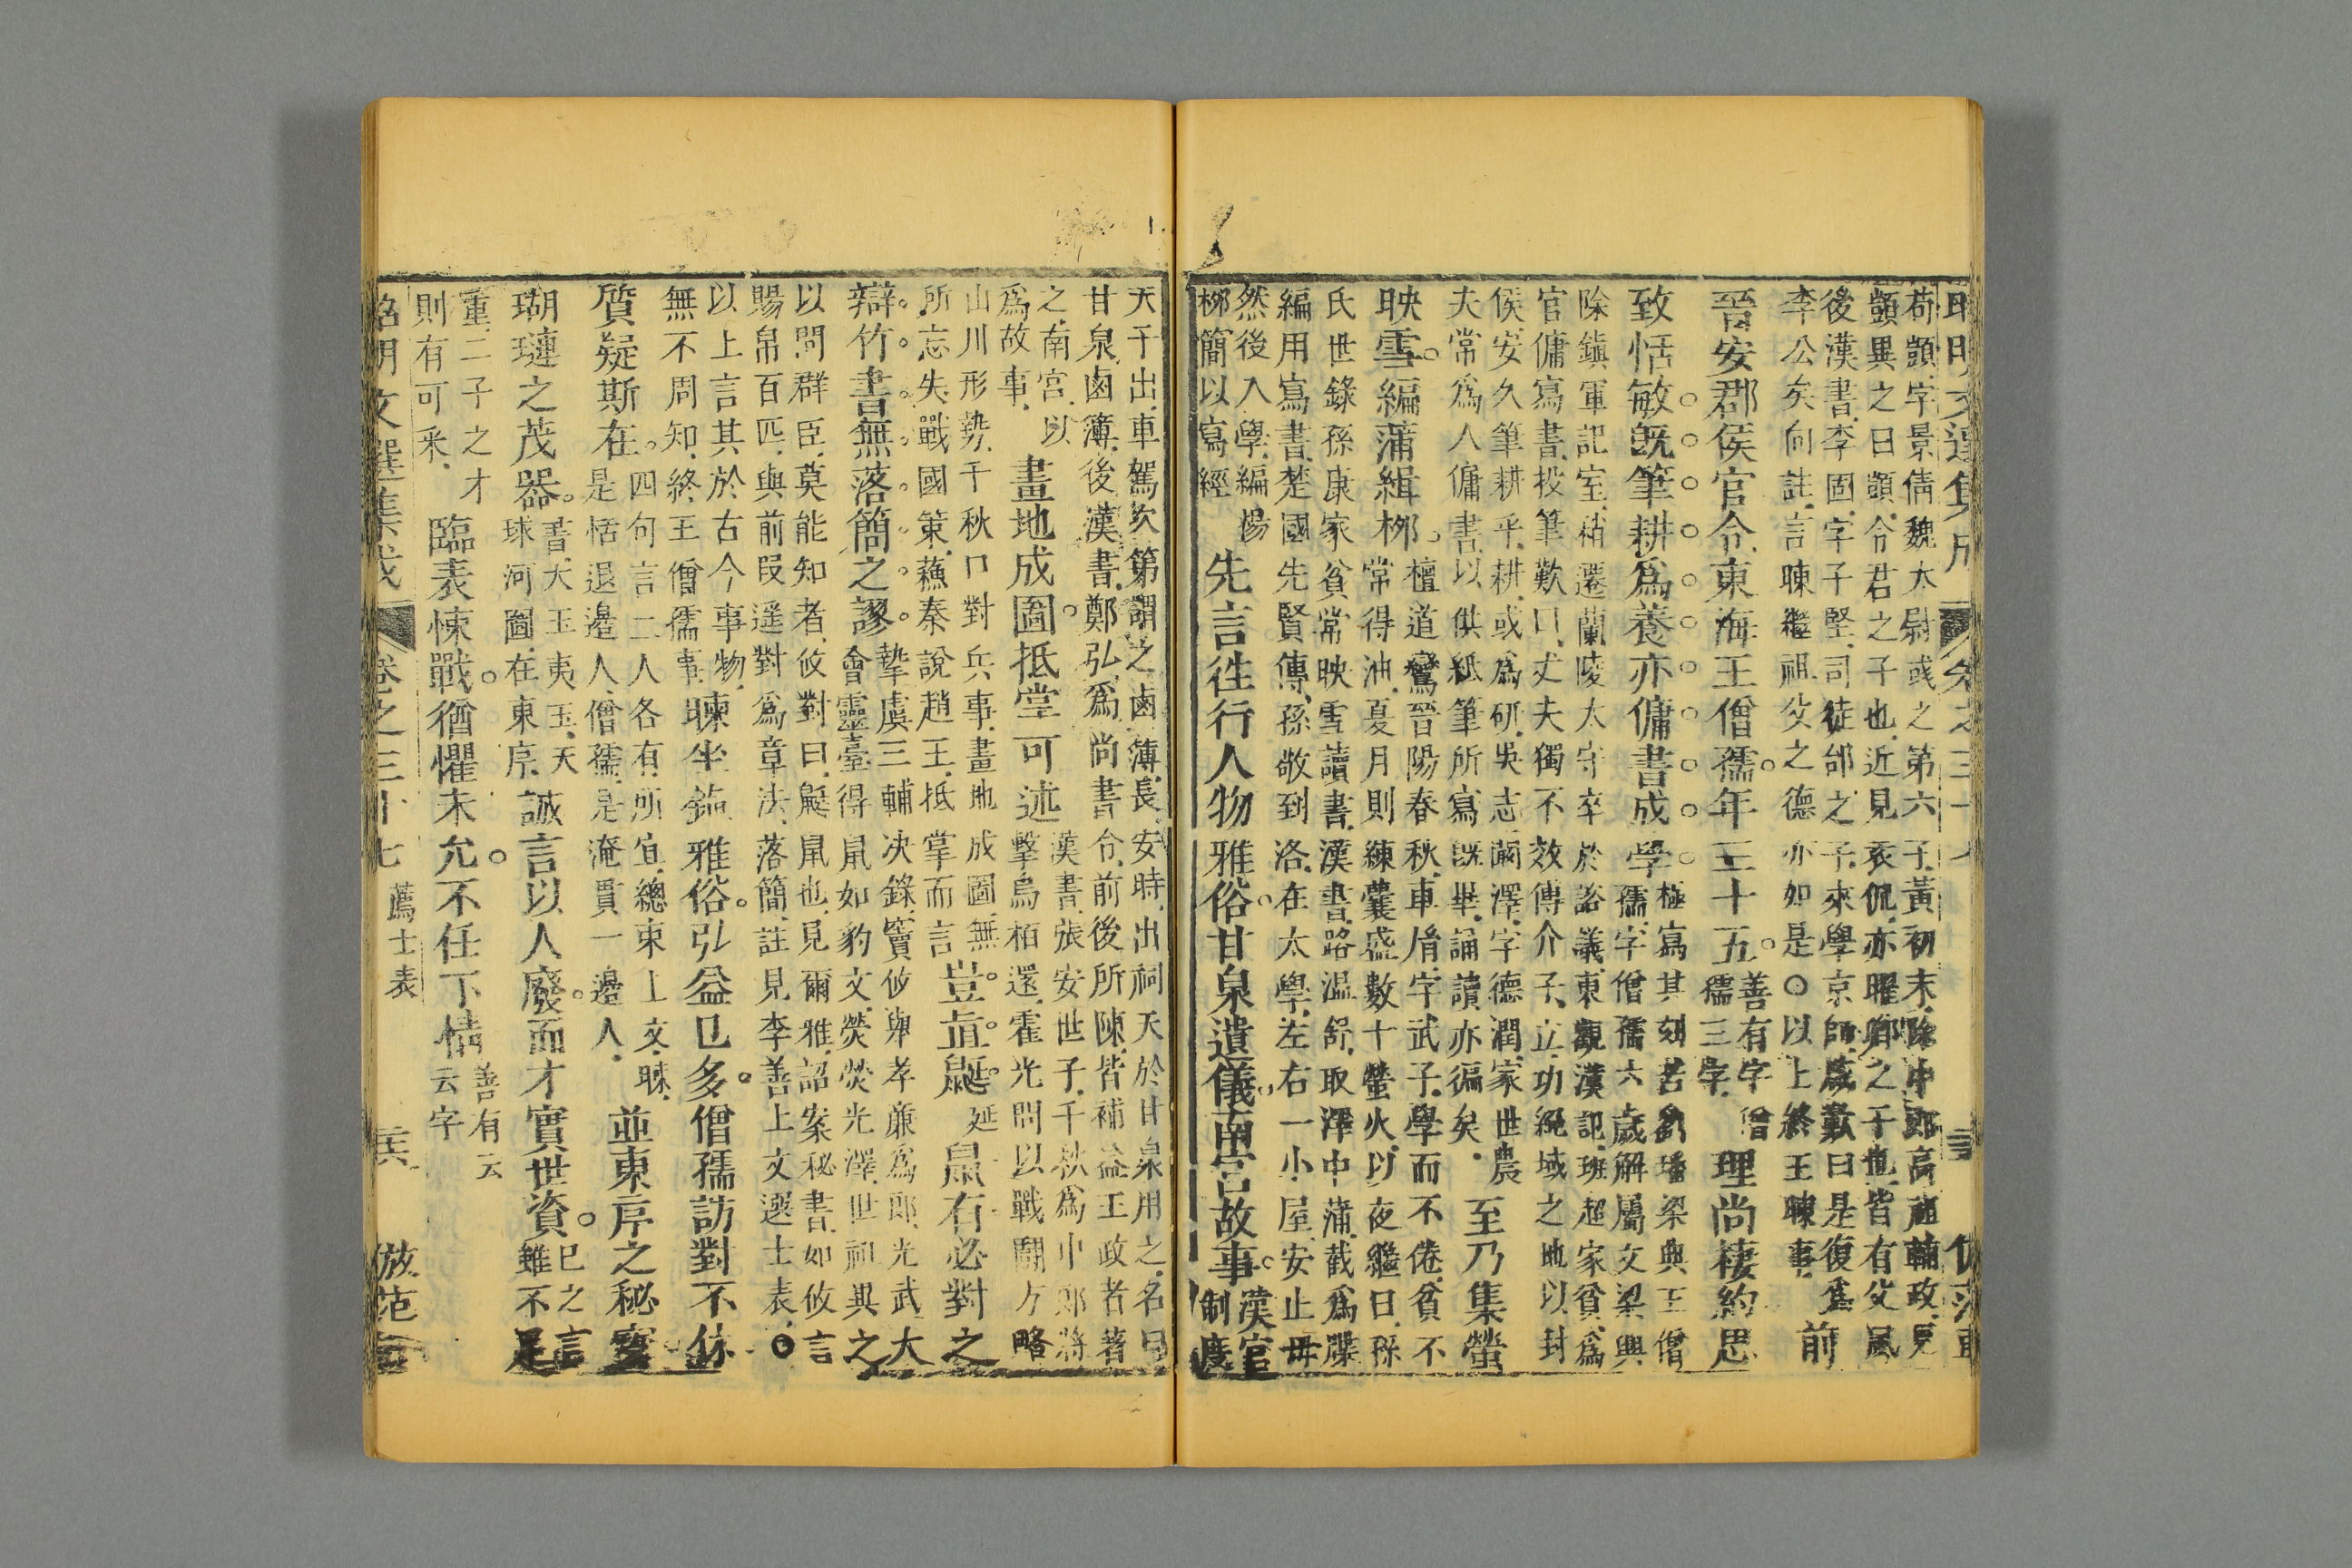 荀顗,字景倩,魏太尉彧之第六子,黃初末,除中郎,高祖輔政,見
顗異之曰顗,令君之子也,近見袁侃,亦曜卿之子也,皆有父風
後漢書,李固,字子堅,司徒郃之子,來學京師,咸歎曰是復為
李公矣向註,言暕繼祖父之德亦如是○以上終王暕事,前
晉安郡侯官令,東海王僧孺。年三十五。善有字僧孺三字,理尚棲約思
致恬敏旣筆耕爲養亦傭書成學。極寫其刻苦劉璠梁典王僧孺,字僧孺六歲解屬文梁興
除鎮軍記室,稍遷蘭陵太守卒於諮議,東觀漢記,班超家貧,爲
官傭寫書,投筆歎曰,丈夫獨不效傅介子,立功絕域之地以封
侯,安久筆耕乎,耕,或爲研,吳志闞澤,字德潤,家世農
夫常爲人傭書,以供紙筆所寫旣畢,誦讀亦徧矣。至乃集螢
映雪。編蒲緝柳。檀道鸞晉陽春秋,車胤,字武子,學而不倦,貧不
常得油,夏月則練囊盛數十螢火,以夜繼日,孫
氏世錄孫康家貧常映雪讀書,漢書,路温舒,取澤中蒲,截爲牒
編用寫書,楚國先賢傳,孫敬到洛,在太學,左右一小屋,安止母
然後入學,編楊
柳簡以寫經
先言往行人物雅俗。甘泉遺儀。南宮故事。漢官制度
天子出,車駕次第謂之鹵簿,長安時,出祠天於甘泉用之,名曰
甘泉鹵簿,後漢書,鄭弘,爲尚書令,前後所陳,皆補益王政者著
之南宮,以
爲故事,
畫地成圖。抵掌可述漢書,張安世子,千秋爲中郎將
擊烏桓還,霍光問以戰鬬方略
山川形勢,千秋口對兵事,畫地成圖,無
所忘失,戰國策,蘇秦說趙王,抵掌而言
豈直鼮延鼠有必對之
辯。竹書無落簡之謬。摯虞三輔决錄,竇攸舉孝廉爲郎,光武大
會靈臺得鼠如豹文,熒熒光澤,世祖異之
以問群臣,莫能知者,攸對曰,鼮鼠也,見爾雅,詔案秘書,如攸言
賜帛百匹,與前叚遥對爲章法,落簡,註見李善上文選士表,○
以上言其於古今事物,
無不周知,終王僧孺事,
暕坐鎮雅俗。弘益已多。僧孺訪對不休
質疑斯在。四句言二人各有所宜,總束上文,暕,
是恬退邊人,僧孺,是淹貫一邊人,
並東序之秘寶
瑚璉之茂器。書大玉夷玉,天
球河圖,在東序,
誠言以人廢。而才實世資。已之言
雖不足
重,二子之才
則有可采,
臨表悚戰。猶懼未允。不任下情善有云
云字
昭明文選集成 卷之三十七 薦士表